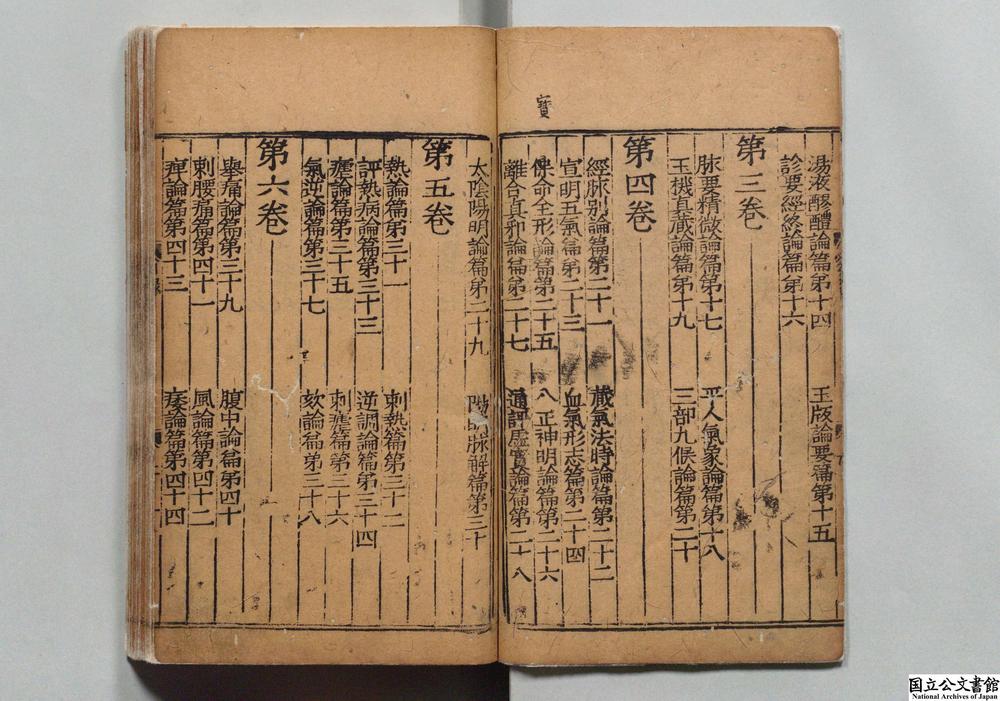 湯液醪醴論篇第十四　玉版論要篇第十五
診要經終論篇第十六
第三卷
脉要精微論篇第十七　平人氣象論篇第十八
玉機真蔵論篇第十九　三部九候論篇第二十
第四卷
經脉別論篇第二十一　蔵氣法時論篇第二十二
宣明五氣篇第二十三　血氣形志篇第二十四
保命全形論篇第二十五　八正神明論篇第二十六
離合真邪論篇第二十七　通評虛實論篇第二十八
寳
太陰陽明論篇第二十九　陽明脉解篇第三十
第五卷
熱論篇第三十一　刺熱篇第三十二
評熱病論篇第三十三　逆調論篇第三十四
瘧論篇第三十五　刺瘧篇第三十六
氣逆論篇第三十七　欬論篇第三十八
第六卷
舉痛論篇第三十九　腹中論篇第四十
刺腰痛篇第四十一　風論篇第四十二
痺論篇第四十三　痿論篇第四十四
国立公文書館
National Archives of Japan